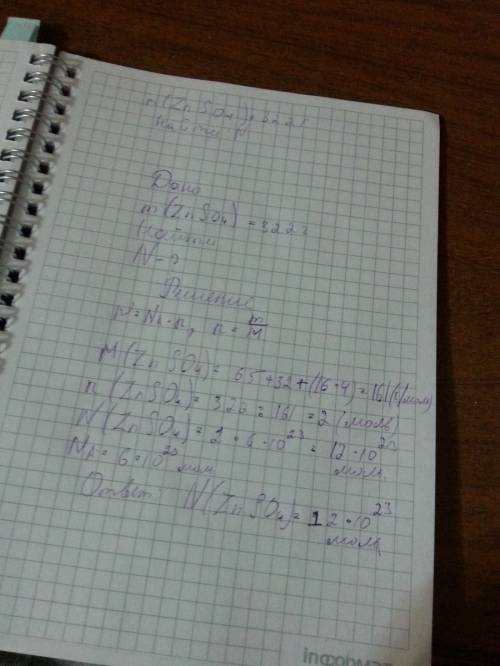 m(ZnSO4) = 322 г
Найти
Дано
m(ZnSO4) = 322 г
Найти
N - ?
Решение
N = NA · n, n = m/M
M(ZnSO4) = 65 + 32 + (16 · 4) = 161 (г/моль)
n(ZnSO4) = 322 : 161 = 2 (моль)
N(ZnSO4) = 2 · 6 · 10^23 = 12 · 10^23 молек
NA = 6 · 10^23 молек
Ответ N(ZnSO4) = 12 · 10^23 молек